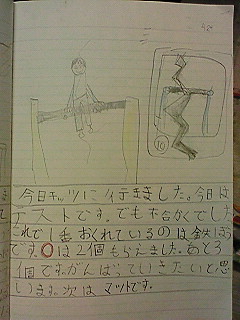 今日キッツに行きました。今日は
テストです。でも不合かくでした
これで1番おくれているのは金失ぼう
です。〇は2個もらえました。あと3
個です。がんばっていきたいと思
います。次はマットです。